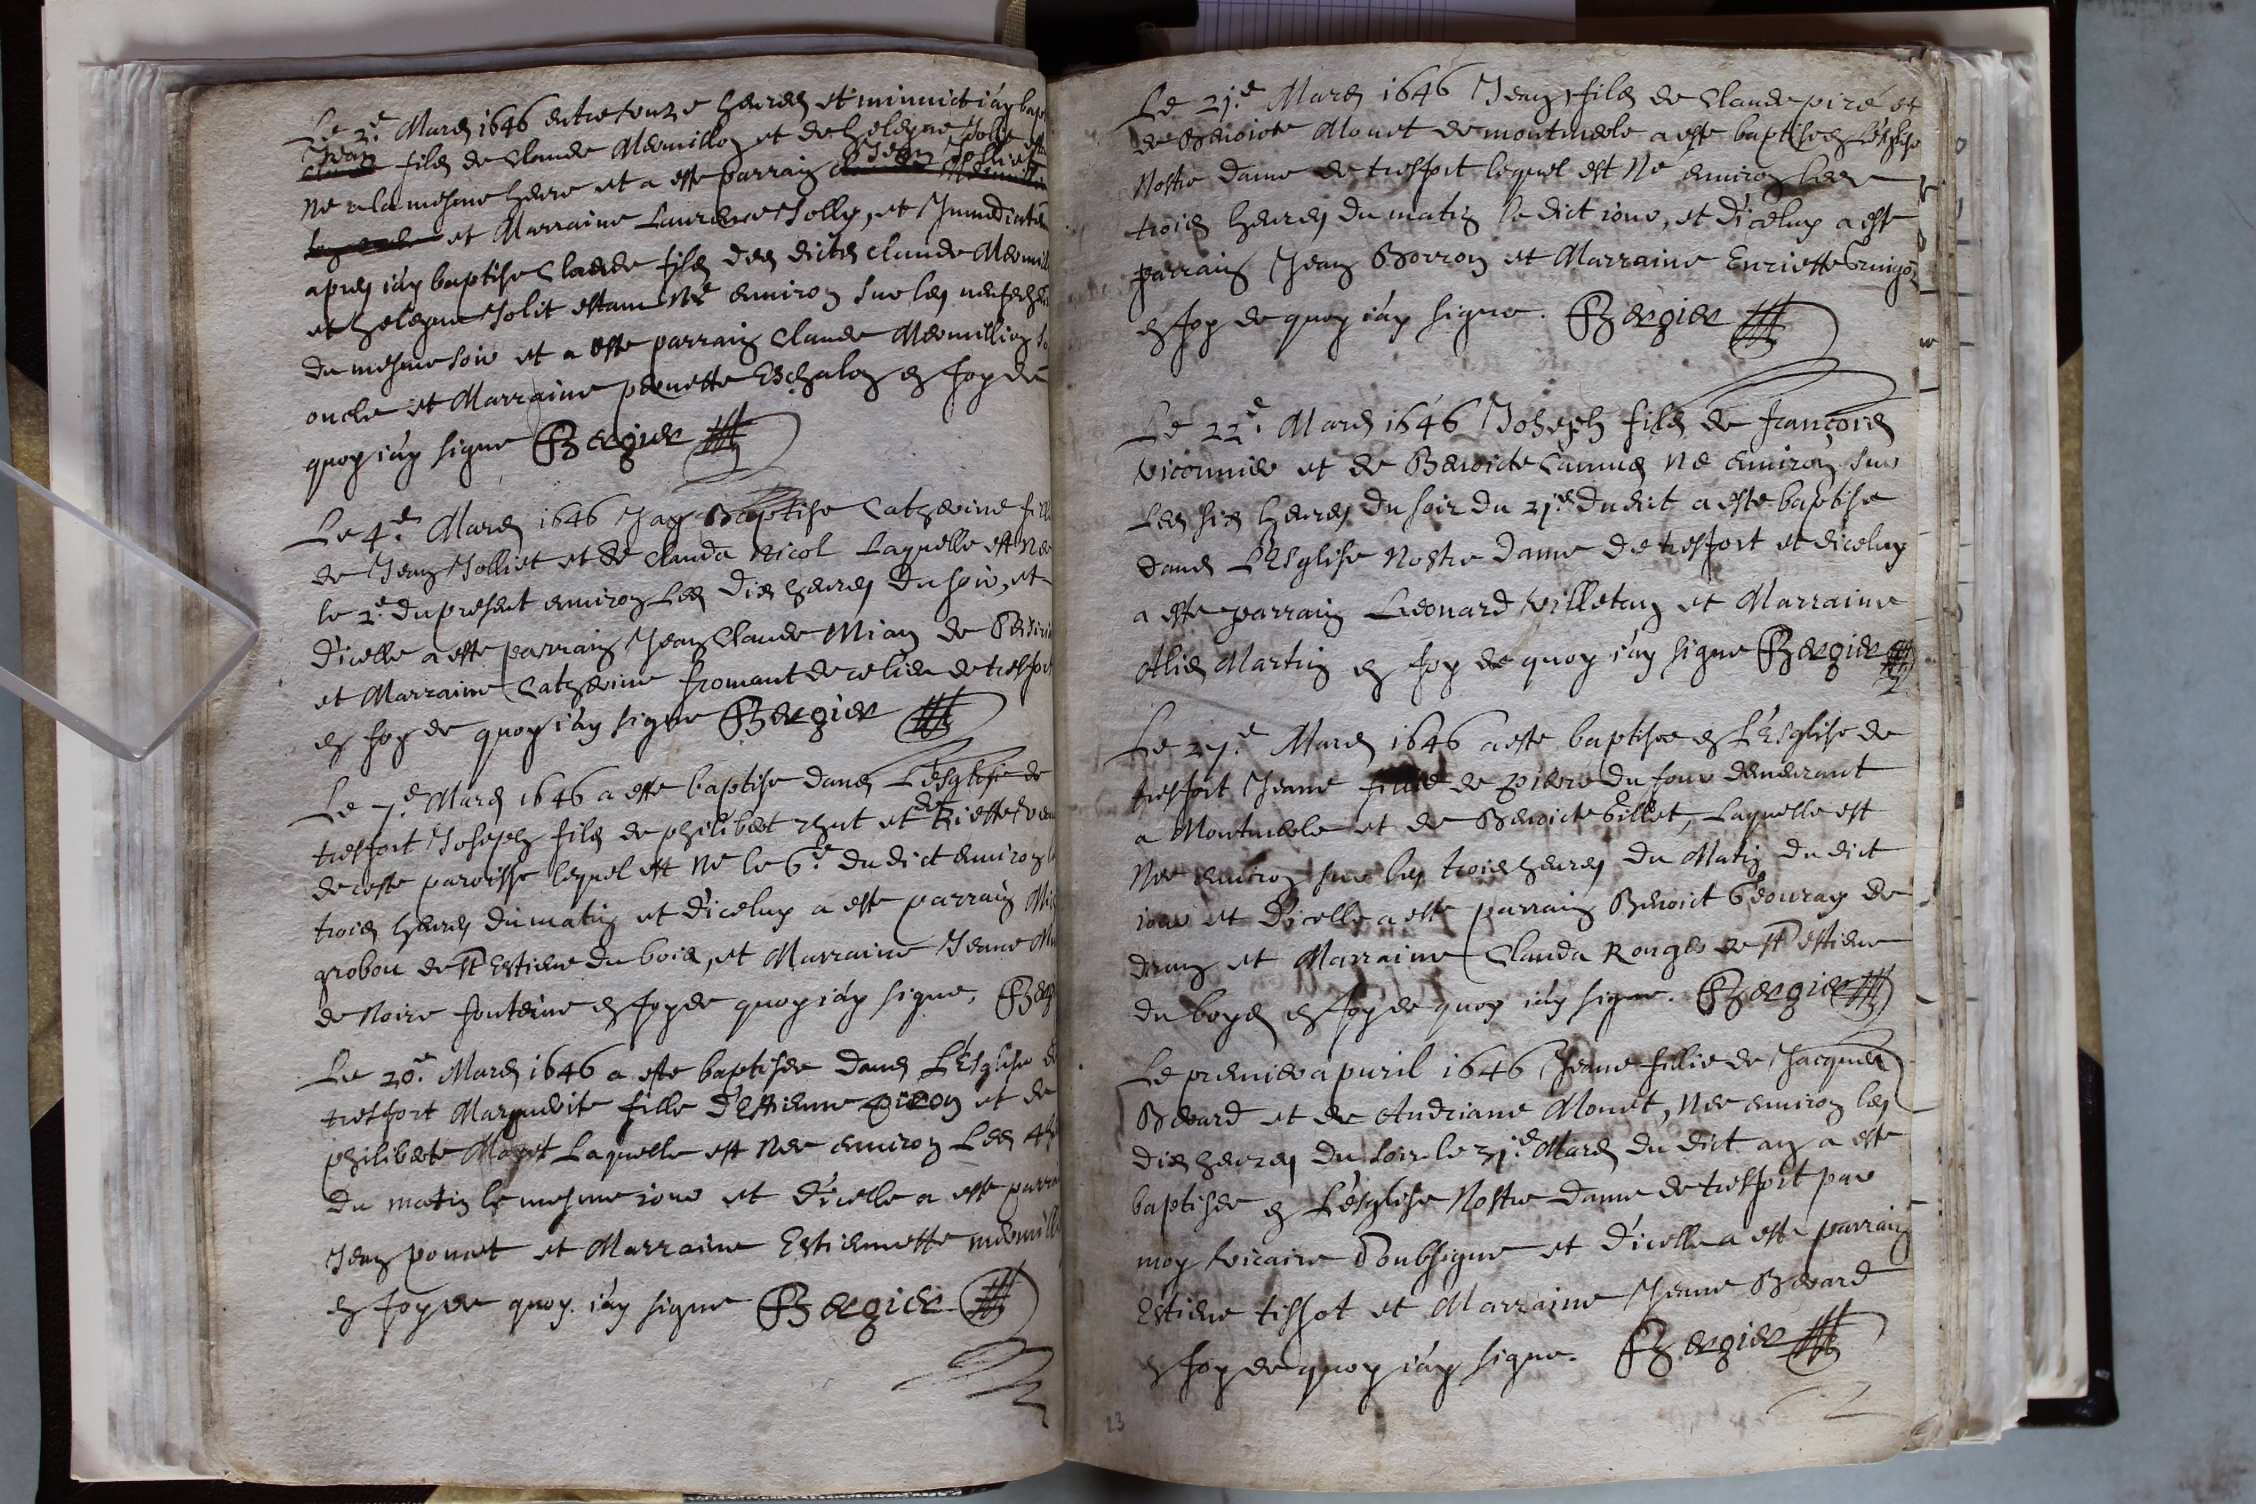 Le 2e. Mars 1646 entre onze heures et minuict i'ay bap
Jean fils de Claude Mermillon et de helegne Jolit est
né a la mesme heure et a esté parrain Jean Jolliet
et Marraine Laurence Jolly, et Jmmediatem
apres i'ay baptise Claude fils des dicts claude Mermill
et helegne Jolit estant né environ sur les neuf heu
du mesme soir et a esté parrain Claude Mermillion so
oncle et Marraine pernette Eschalon en foy de
quoy i'ay signe Bergier
Le 4e. Mars 1646 J'ay Baptise Catherine fill
de Jean Jolliet et de Clauda Nicol Laquelle est Née
le 2e. du present environ Les dix heures du soir, et
d'icelle a esté parrain Jean Claude Mian de
et Marraine Catherine fromant de ce lieu de tresfort
en foy de quoy i'ay signe Bergier
Le 7e. Mars 1646 a esté baptise dans L'esglise de
tresfort Joseph fils de philibert et de
de ceste paroisse lequel est Né le 6e. du dict environ l
trois heures du matin et d'iceluy a esté parrain Mi
grobon de st Estiene du bois, et Marraine Jeanne Mu
de Noire fonteine en foy de quoy i'ay signe, Berg
Le 20e. Mars 1646 a esté baptisée dans L'Esglise de
tresfort Marguerite fille d'Estienne piron et de
philiberte Laquelle est Née environ Les 4 h
du matin le mesme iour et d'icelle a esté parra
Jean poncet et Marraine Estiennette mermill
en foy de quoy i'ay signe Bergier
Le 21e. Mars 1646 Jean fils de Claude piré et
de Benoicte Monet de montmerle a esté baptisé en L'esglise
Nostre dame de tresfort lequel est Né environ Les
trois heures du matin le dict iour, et d'iceluy a esté
parrain Jean Borron et Marraine Enriette
en foy de quoy i'ay signe. Bergier
Le 22e. Mars 1646 Joseph fils de françois
viconnier et de Benoicte Camus Né environ sur
Les six heures du soir du 21e du dict a esté baptise
dans L'Esglise Nostre Dame de tresfort et d'iceluy
a esté parrain Leonard villetan et Marraine
Alis Martin en foy de quoy i'ay signe Bergier
Le 27e. Mars 1646 a esté baptisée en L'Esglise de
tresfort Jeanne fille de piere du four demeurant
a Montmerle et de Benoicte Gillet, Laquelle est
Née environ sur les trois heures du Matin du dict
iour et d'icelle a esté parrain Benoict Geouray de
dran et Marraine Clauda Ronger de st estiene
du boys en foy de quoy i'ay signe. Bergier
Le premier apuril 1646 Jeanne fillie de Jacques
Berard et de Andriane Monet, Née environ les
dix heures du soir le 31e. Mars du dict an a esté
baptisée en L'esglise Nostre dame de tresfort par
moy vicaire soubsigne et d'icelle a esté parrain
Estiene tissot et Marraine Jeanne Berard
en foy de quoy i'ay signe. Bergier
23